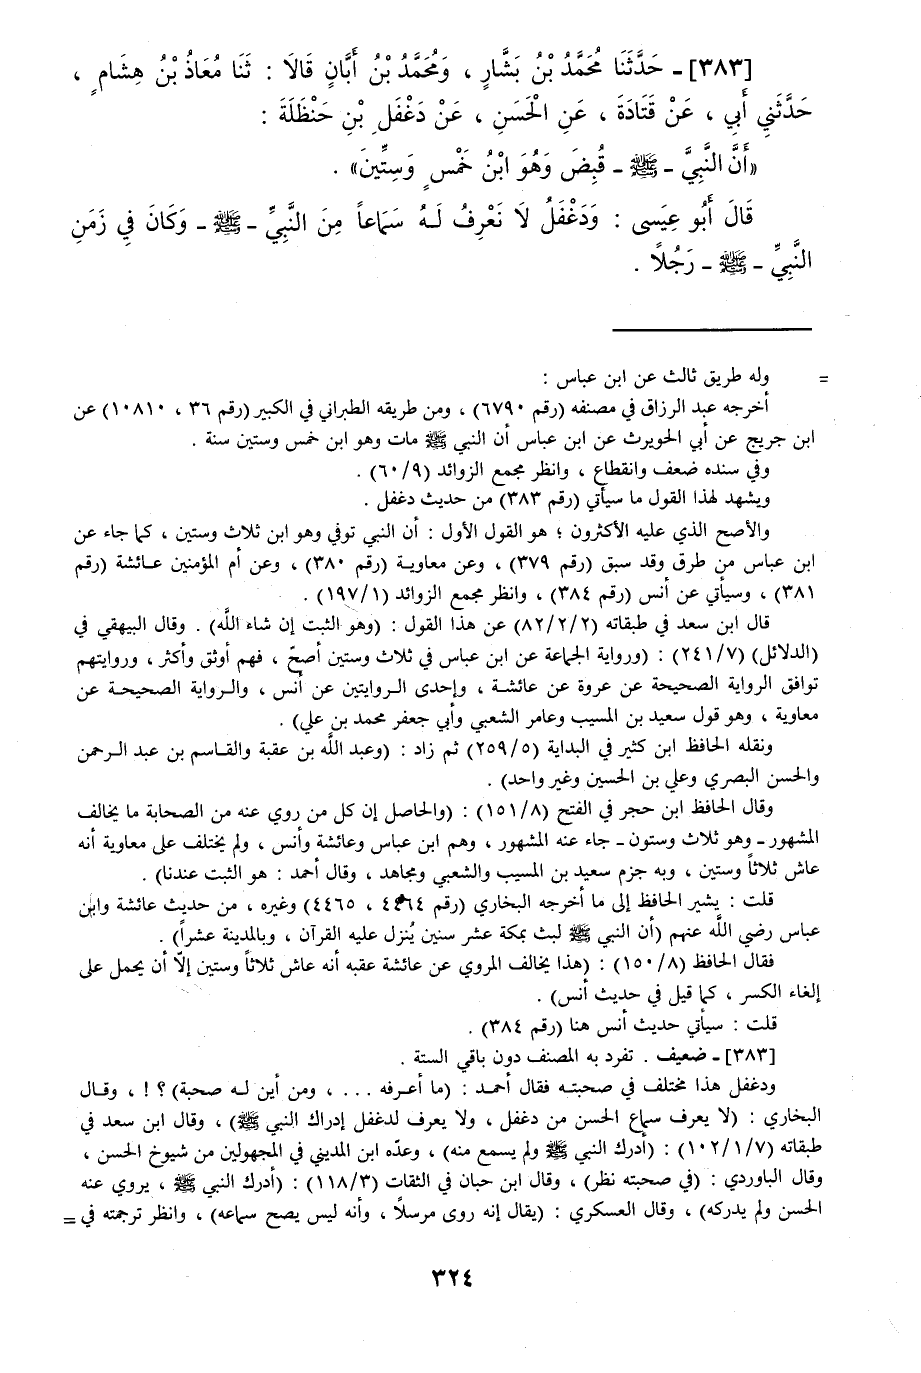 [٣٨٣] ـ حَدَّثَنَا مُحَمَّدُ بْنُ بَشَّارٍ ، وَمُحَمَّدُ بْنُ أَبَّانٍ قَالَا : ثَنَا مُعَاذُ بْنُ هِشَامٍ ،
حَدَّثَنِي أَبِي ، عَنْ قَتَادَةَ ، عَنِ الْحَسَنِ ، عَنْ دَغْفَلِ بْنِ حَنْظَلَةَ :
«أَنَّ النَّبِيَّ ـ ﷺ ـ قُبِضَ وَهُوَ ابْنُ خَمْسٍ وَسِتِّينَ» .
قَالَ أَبُو عِيَسى : وَدَغْفَلُ لَا نَعْرِفُ لَـهُ سَمَاعاً مِنَ النَّبِيِّ ـ ﷺ ـ وَكَانَ فِي زَمَنِ
النَّبِيِّ ـ ﷺ ـ رَجُلًا .
= وله طريق ثالث عن ابن عباس :
أخرجه عبد الرزاق في مصنفه (رقم ٦٧٩٠) ، ومن طريقه الطبراني في الكبير (رقم ٣٦ ، ١٠٨١٠) عن
ابن جريج عن أبي الحويرث عن ابن عباس أن النبي ﷺ مات وهو ابن خمس وستين سنة .
وفي سنده ضعف وانقطاع ، وانظر مجمع الزوائد (٩/ ٦٠) .
ويشهد لهذا القول ما سيأتي (رقم ٣٨٣) من حديث دغفل .
والأصح الذي عليه الأكثرون ؛ هو القول الأول : أن النبي توفي وهو ابن ثلاث وستين ، كما جاء عن
ابن عباس من طرق وقد سبق (رقم ٣٧٩) ، وعن معاوية (رقم ٣٨٠) ، وعن أم المؤمنين عـائشة (رقم
٣٨١) ، وسيأتي عن أنس (رقم ٣٨٤) ، وانظر مجمع الزوائد (١/ ١٩٧) .
قال ابن سعد في طبقاته (٢/ ٢/ ٨٢) عن هذا القول : (وهو الثبت إن شاء اللَّه) . وقال البيهقي في
(الدلائل) (٧/ ٢٤١) : (ورواية الجماعة عن ابن عباس في ثلاث وستين أصحّ ، فهم أوثق وأكثر ، وروايتهم
توافق الرواية الصحيحة عن عروة عن عائشـة ، وإحدى الـروايتين عن أنس ، والـرواية الصحيحـة عن
معاوية ، وهو قول سعيد بن المسيب وعامر الشعبي وأبي جعفر محمد بن علي) .
ونقله الحافظ ابن كثير في البداية (٥/ ٢٥٩) ثم زاد : (وعبد اللَّه بن عقبة والقـاسم بن عبد الـرحمن
والحسن البصري وعلي بن الحسين وغير واحد) .
وقال الحافظ ابن حجر في الفتح (٨/ ١٥١) : (والحاصل إن كل من روي عنه من الصحابة ما يخالف
المشهور ـ وهو ثلاث وستون ـ جاء عنه المشهور ، وهم ابن عباس وعائشة وأنس ، ولم يختلف على معاوية أنه
عاش ثلاثاً وستين ، وبه جزم سعيد بن المسيب والشعبي ومجاهد ، وقال أحمد : هو الثبت عندنا) .
قلت : يشير الحافظ إلى ما أخرجه البخاري (رقم ٤٤٦٤ ، ٤٤٦٥) وغيره ، من حديث عائشة وابن
عباس رضي اللَّه عنهم (أن النبي ﷺ لبث بمكة عشر سنين يُنزل عليه القرآن ، وبالمدينة عشراً) .
فقال الحافظ (٨/ ١٥٠) : (هذا يخالف المروي عن عائشة عقبه أنه عاش ثلاثاً وستين إلّا أن يحمل على
إلغاء الكسر ، كما قيل في حديث أنس) .
قلت : سيأتي حديث أنس هنا (رقم ٣٨٤) .
[٣٨٣] ـ ضعيف . تفرد به المصنف دون باقي الستة .
ودغفل هذا مختلف في صحبتـه فقال أحمـد : (ما أعـرفه ... ، ومن أين لـه صحبة) ؟ ! ، وقـال
البخاري : (لا يعرف سماع الحسن من دغفل ، ولا يعرف لدغفل إدراك النبي ﷺ) ، وقال ابن سعد في
طبقاته (٧/ ١/ ١٠٢) : (أدرك النبي ﷺ ولم يسمع منه) ، وعدّه ابن المديني في المجهولين من شيوخ الحسن ،
وقال الباوردي : (في صحبته نظر) ، وقال ابن حبان في الثقات (٣/ ١١٨) : (أدرك النبي ﷺ ، يروي عنه
الحسن ولم يدركه) ، وقال العسكري : (يقال إنه روى مرسلًا ، وأنه ليس يصح سماعه) ، وانظر ترجمته في =
٣٢٤